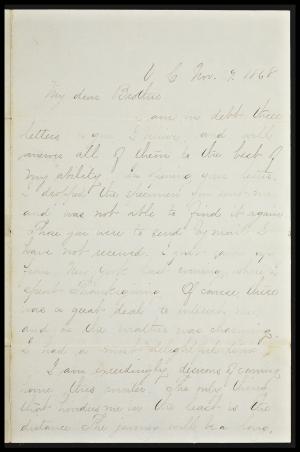 U C Nov. 9. 1868
My dear Brother
I am in debt three
letters to you I know, and will
answer all of them to the best of
my ability. In opening your letter,
I dropped the specimen you sent me
and was not able to find it again
Those you were to send by mail I
have not received. I got
from New York last evening, where I
spent Thanksgiving. Of course there
was a great deal to interest me,
and as the weather was charming,
I had a most delightful time
I am exceedingly desirous of coming
home this winter. The only thing
that hinders me in the least is the
distance. The journey will be a long,